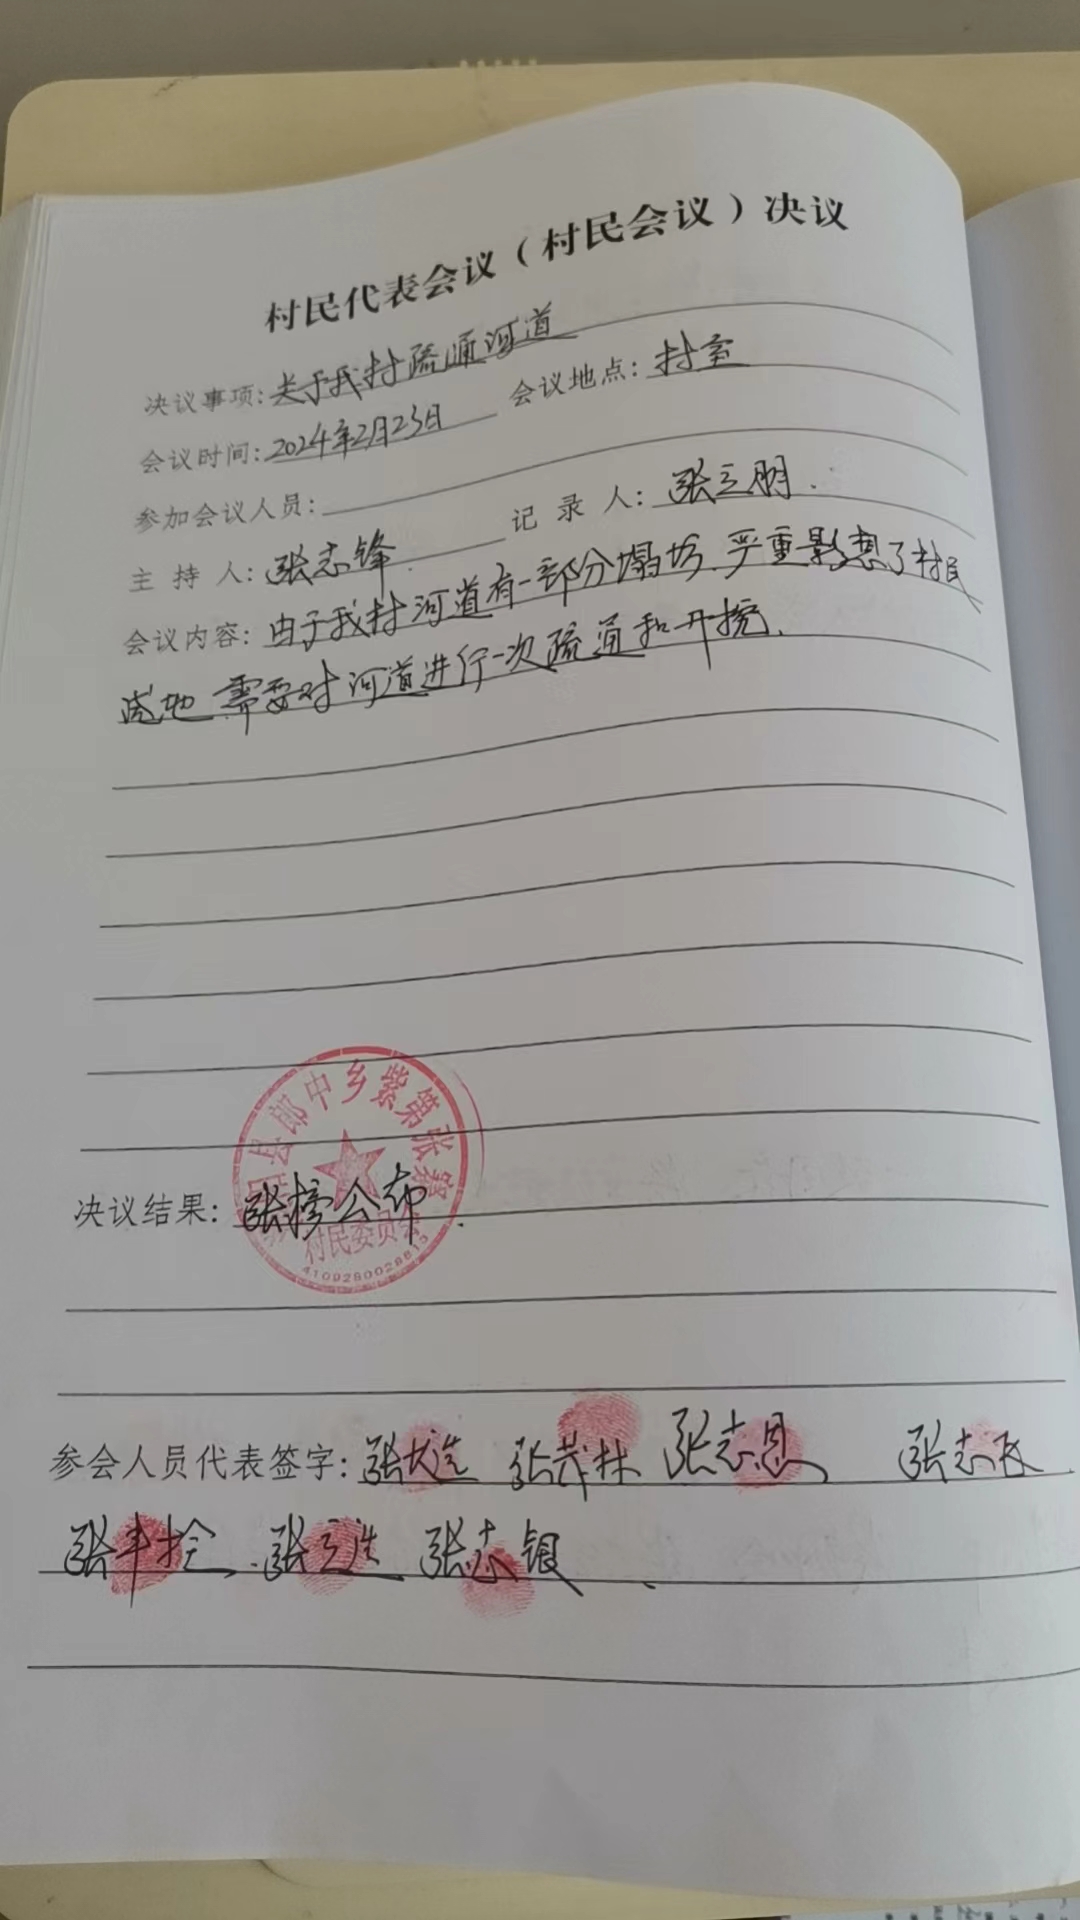 村民代表会议（村民会议）决议
决议事项：关于我村疏通河道
会议时间：2024年2月23日 会议地点：村室
参加会议人员：
主持人：张志锋 记录人：张立朋
会议内容：由于我村河道有一部分塌坊.严重影想了村民
浇地.需要对河道进行一次疏通和开挖.
县郎中乡紫第张
村民委员会
4109280028813
决议结果：张榜公布.
参会人员代表签字：张 张茂林 张志恩 张志民
张丰拴.张立 张志银